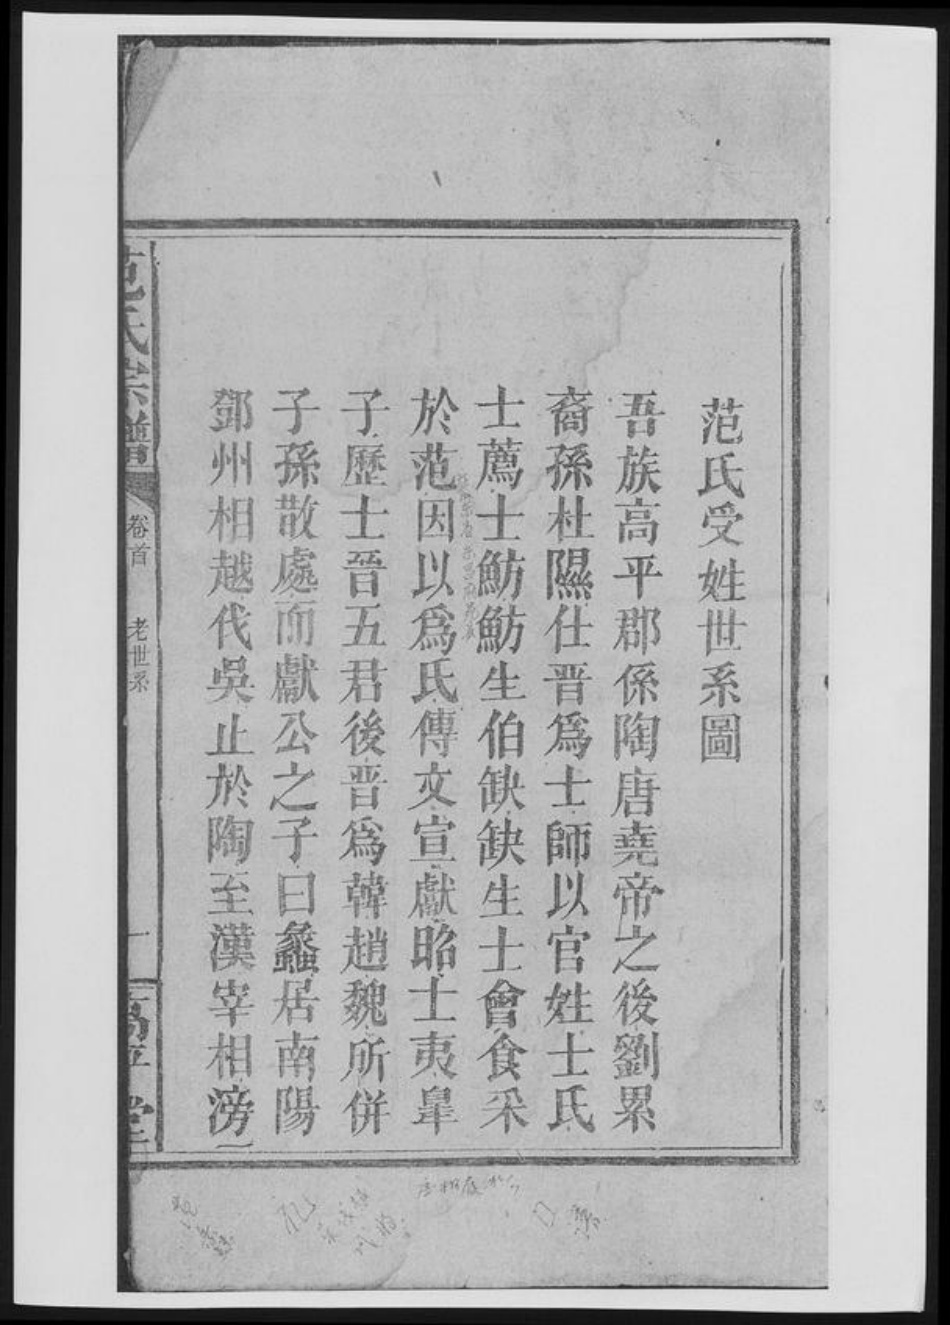 范氏受姓世系圖
吾族高平郡係陶唐堯帝之後劉累
裔孫杜隰仕晋爲士師以官姓士氏
士薦士魴魴生伯缺缺生士會食采
於范因以爲氏傳文宣獻昭士夷臯
子歷士晉五君後晋爲韓趙魏所併
子孫散處而獻公之子曰蠡居南陽
鄧州相越伐吳止於陶至漢宰相滂
范氏宗譜
卷首 老世系
一
高平堂